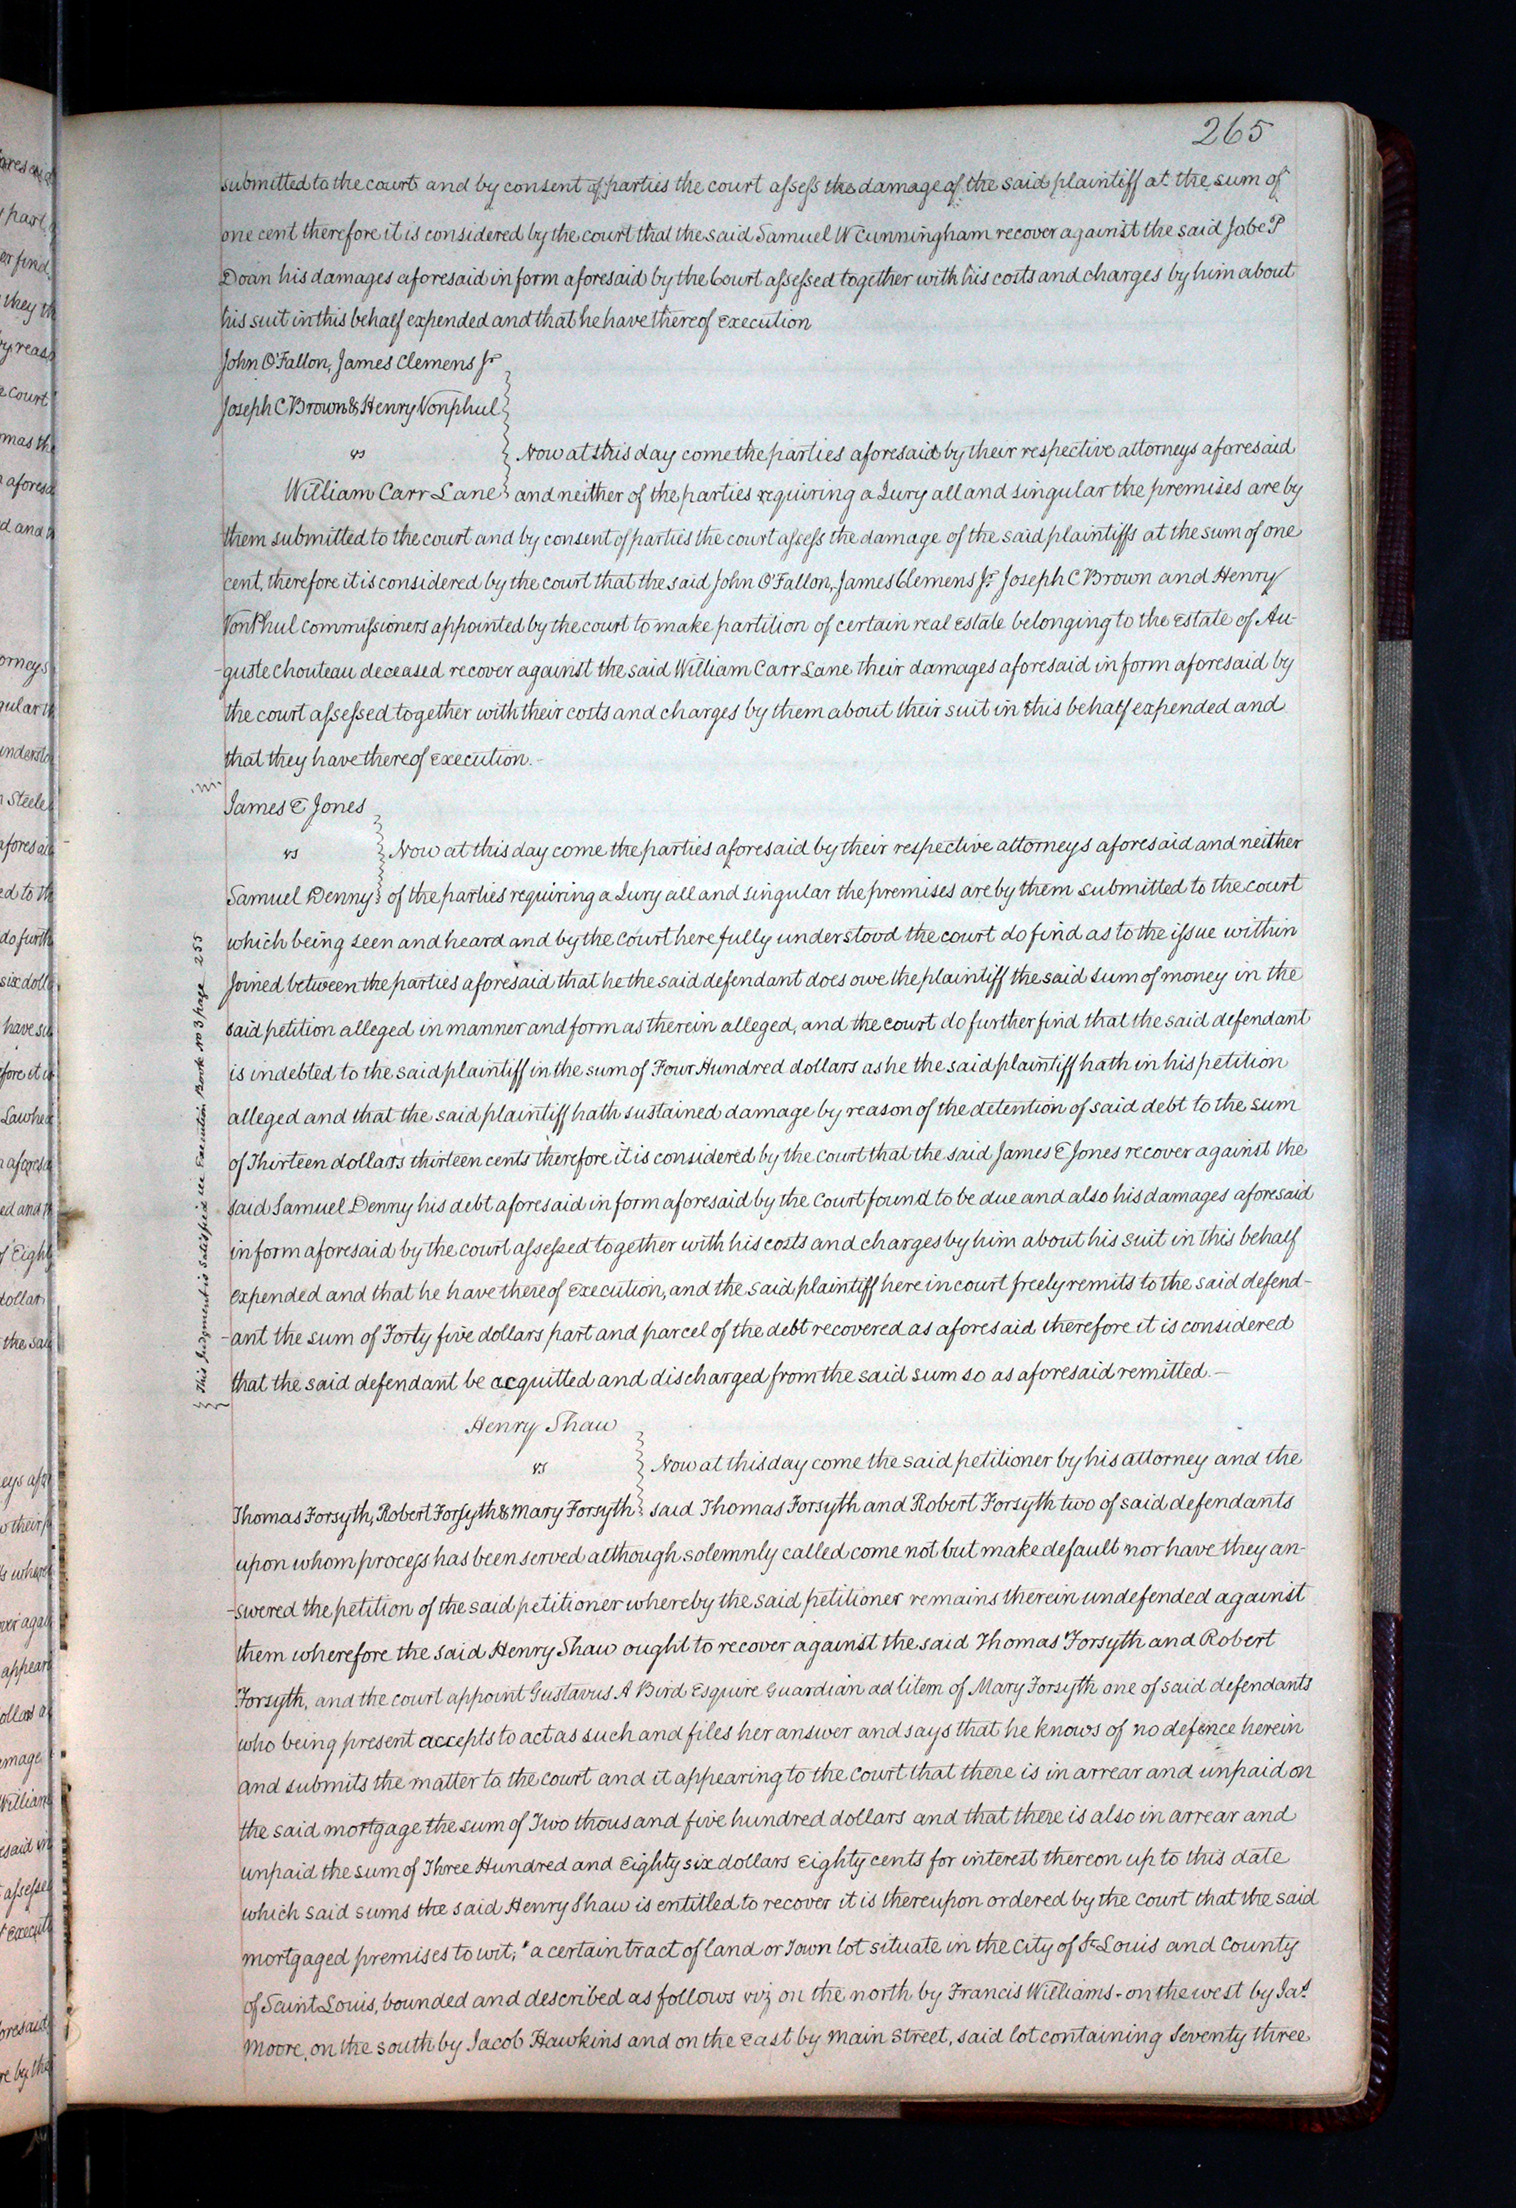 265
submitted to the court and by consent of parties the court assess the damage of the said plaintiff at the sum of
one cent therefore it is considered by the court that the said Samuel W Cunningham recover against the said Jabe P
Doan his damages aforesaid in form aforesaid by the Court assessed together with his costs and charges by him about
his suit in this behalf expended and that he have thereof Execution
John O'Fallon, James Clemens Jr
Joseph C Brown & Henry Vonphul
vs Now at this day come the parties aforesaid by their respective attorneys aforesaid
William Carr Lane and neither of the parties requiring a Jury all and singular the premises are by
them submitted to the court and by consent of parties the court assess the damage of the said plaintiffs at the sum of one
cent, therefore it is considered by the court that the said John O'Fallon, James Clemens Jr Joseph C Brown and Henry
VonPhul commissioners appointed by the court to make partition of certain real Estate belonging to the Estate of Au-
-guste Chouteau deceased recover against the said William Carr Lane their damages aforesaid in form aforesaid by
the court assessed together with their costs and charges by them about their suit in this behalf expended and
that they have thereof Execution.-
James E Jones
vs Now at this day come the parties aforesaid by their respective attorneys aforesaid and neither
Samuel Denny of the parties requiring a Jury all and singular the premises are by them submitted to the court
which being seen and heard and by the court here fully understood the court do find as to the issue within
Joined between the parties aforesaid that he the said defendant does owe the plaintiff the said sum of money in the
said petition alleged in manner and form as therein alleged, and the court do further find that the said defendant
is indebted to the said plaintiff in the sum of Four Hundred dollars as he the said plaintiff hath in his petition
alleged and that the said plaintiff hath sustained damage by reason of the detention of said debt to the sum
of Thirteen dollars thirteen cents therefore it is considered by the court that the said James E Jones recover against the
said Samuel Denny his debt aforesaid in form aforesaid by the Court found to be due and also his damages aforesaid
in form aforesaid by the court assessed together with his costs and charges by him about his suit in this behalf
expended and that he have thereof Execution, and the said plaintiff here in court freely remits to the said defend-
-ant the sum of Forty five dollars part and parcel of the debt recovered as aforesaid therefore it is considered
that the said defendant be acquitted and discharged from the said sum so as aforesaid remitted.-
This Judgment is satisfied in Execution Book No 3 page 255
Henry Shaw
vs Now at this day come the said petitioner by his attorney and the
Thomas Forsyth, Robert Forsyth & Mary Forsyth said Thomas Forsyth and Robert Forsyth two of said defendants
upon whom process has been served although solemnly called come not but make default nor have they an-
-swered the petition of the said petitioner whereby the said petitioner remains therein undefended against
them wherefore the said Henry Shaw ought to recover against the said Thomas Forsyth and Robert
Forsyth, and the court appoint Gustavus A Bird Esquire Guardian ad litem of Mary Forsyth one of said defendants
who being present accepts to act as such and files her answer and says that he knows of no defence herein
and submits the matter to the court and it appearing to the Court that there is in arrear and unpaid on
the said mortgage the sum of Two thousand five hundred dollars and that there is also in arrear and
unpaid the sum of Three Hundred and Eighty six dollars Eighty cents for interest thereon up to this date
which said sums the said Henry Shaw is entitled to recover it is thereupon ordered by the Court that the said
mortgaged premises to wit; "a certain tract of land or Town lot situate in the City of St Louis and County
of Saint Louis, bounded and described as follows viz on the north by Francis Williams - on the west by Jas
Moore, on the south by Jacob Hawkins and on the East by Main Street, said lot containing Seventy three